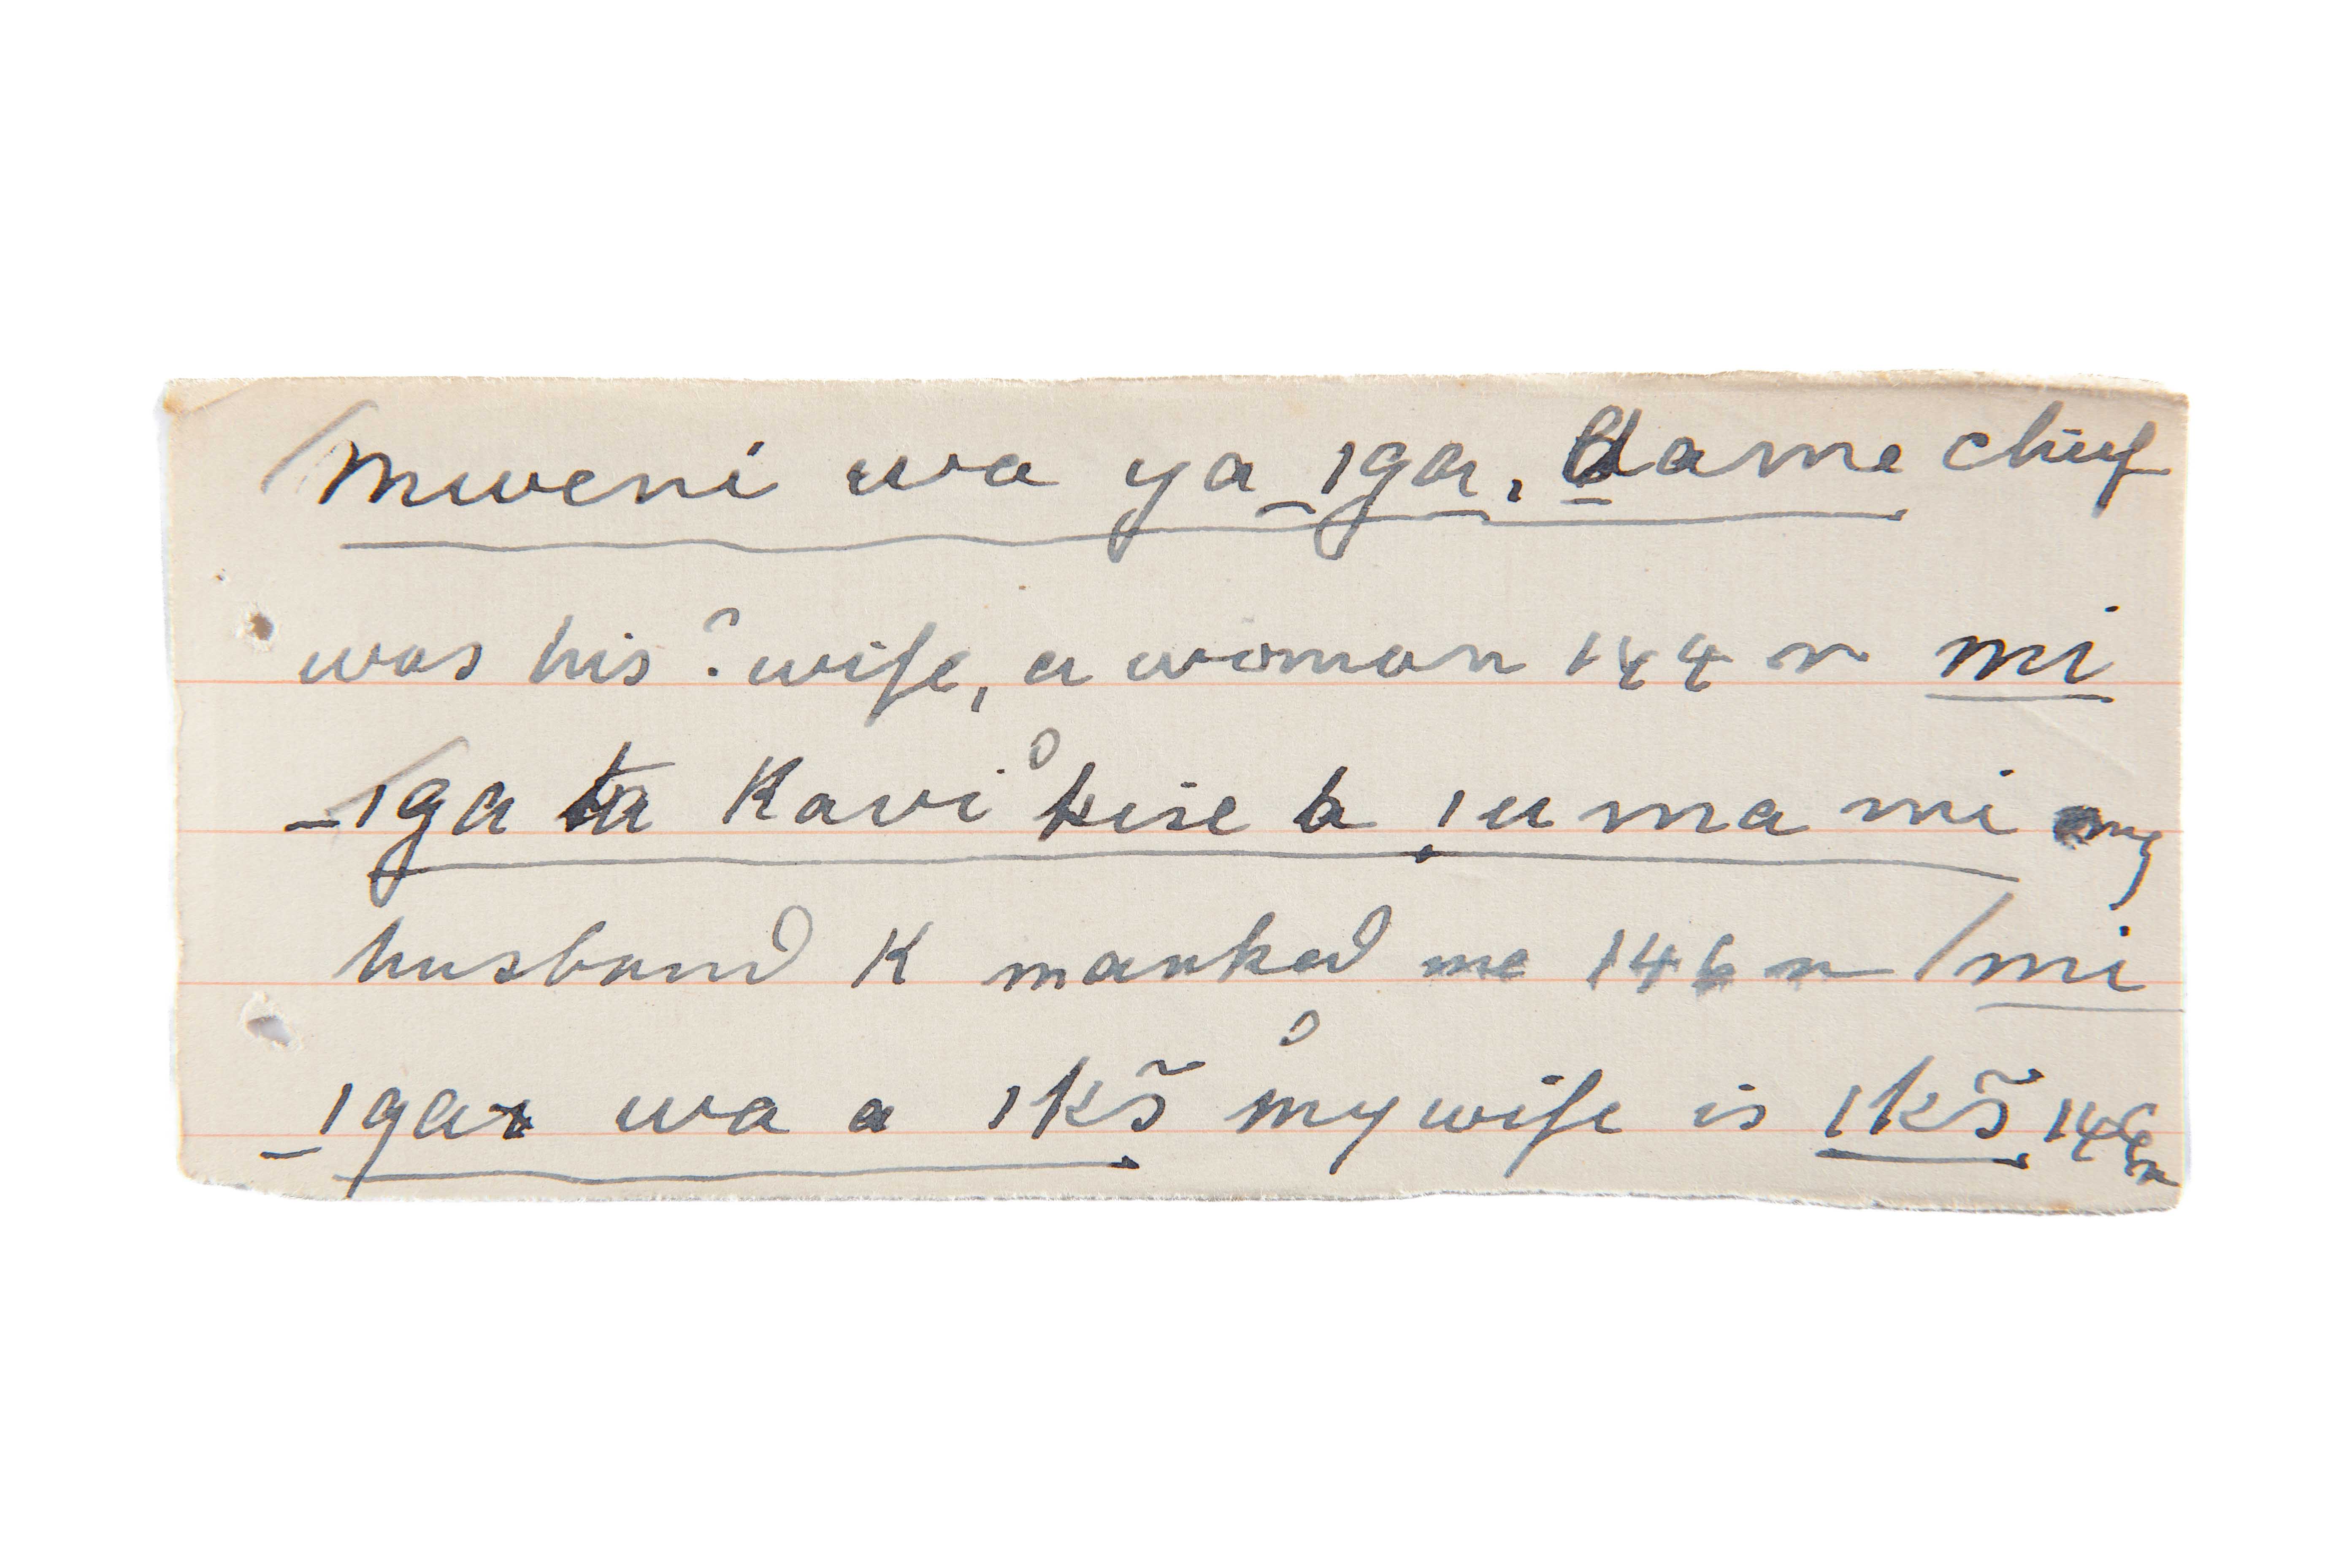 /mweni wa ya iga, dame chief
was his? wife, a woman 144 n mi
/iga ta Kavi kise a iu ma mi my
husband K marked me 146 n /mi
iga wa a ikš my wife is ikš 146 n